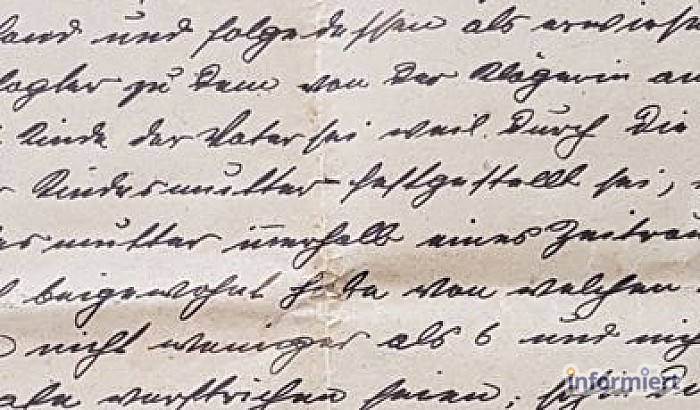 und folgedessen als erwiese
klagter zu dem von der Klägerin an
Kinde der Vater sei weil durch die
Kindesmutter festgestellt sei,
desmutter innerhalb eines Zeitrau
beigewohnt habe von welchen
nicht weniger als 6 und nich
verstrichen seien,
informiert